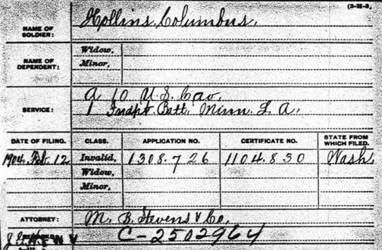 (3-12-9.)
NAME OF SOLDIER: Hollins, Columbus.
NAME OF DEPENDENT: Widow,
Minor,
SERVICE: A 10 U.S. Cav.
1 Indpt Batt. Minn. L. A.
DATE OF FILING. CLASS. APPLICATION NO. CERTIFICATE NO. STATE FROM WHICH FILED.
1904 Feb. 12 Invalid, 1308.726 1104.830 Wash.
Widow,
Minor,
ATTORNEY: M. B. Stevens & Co.
C-2502964